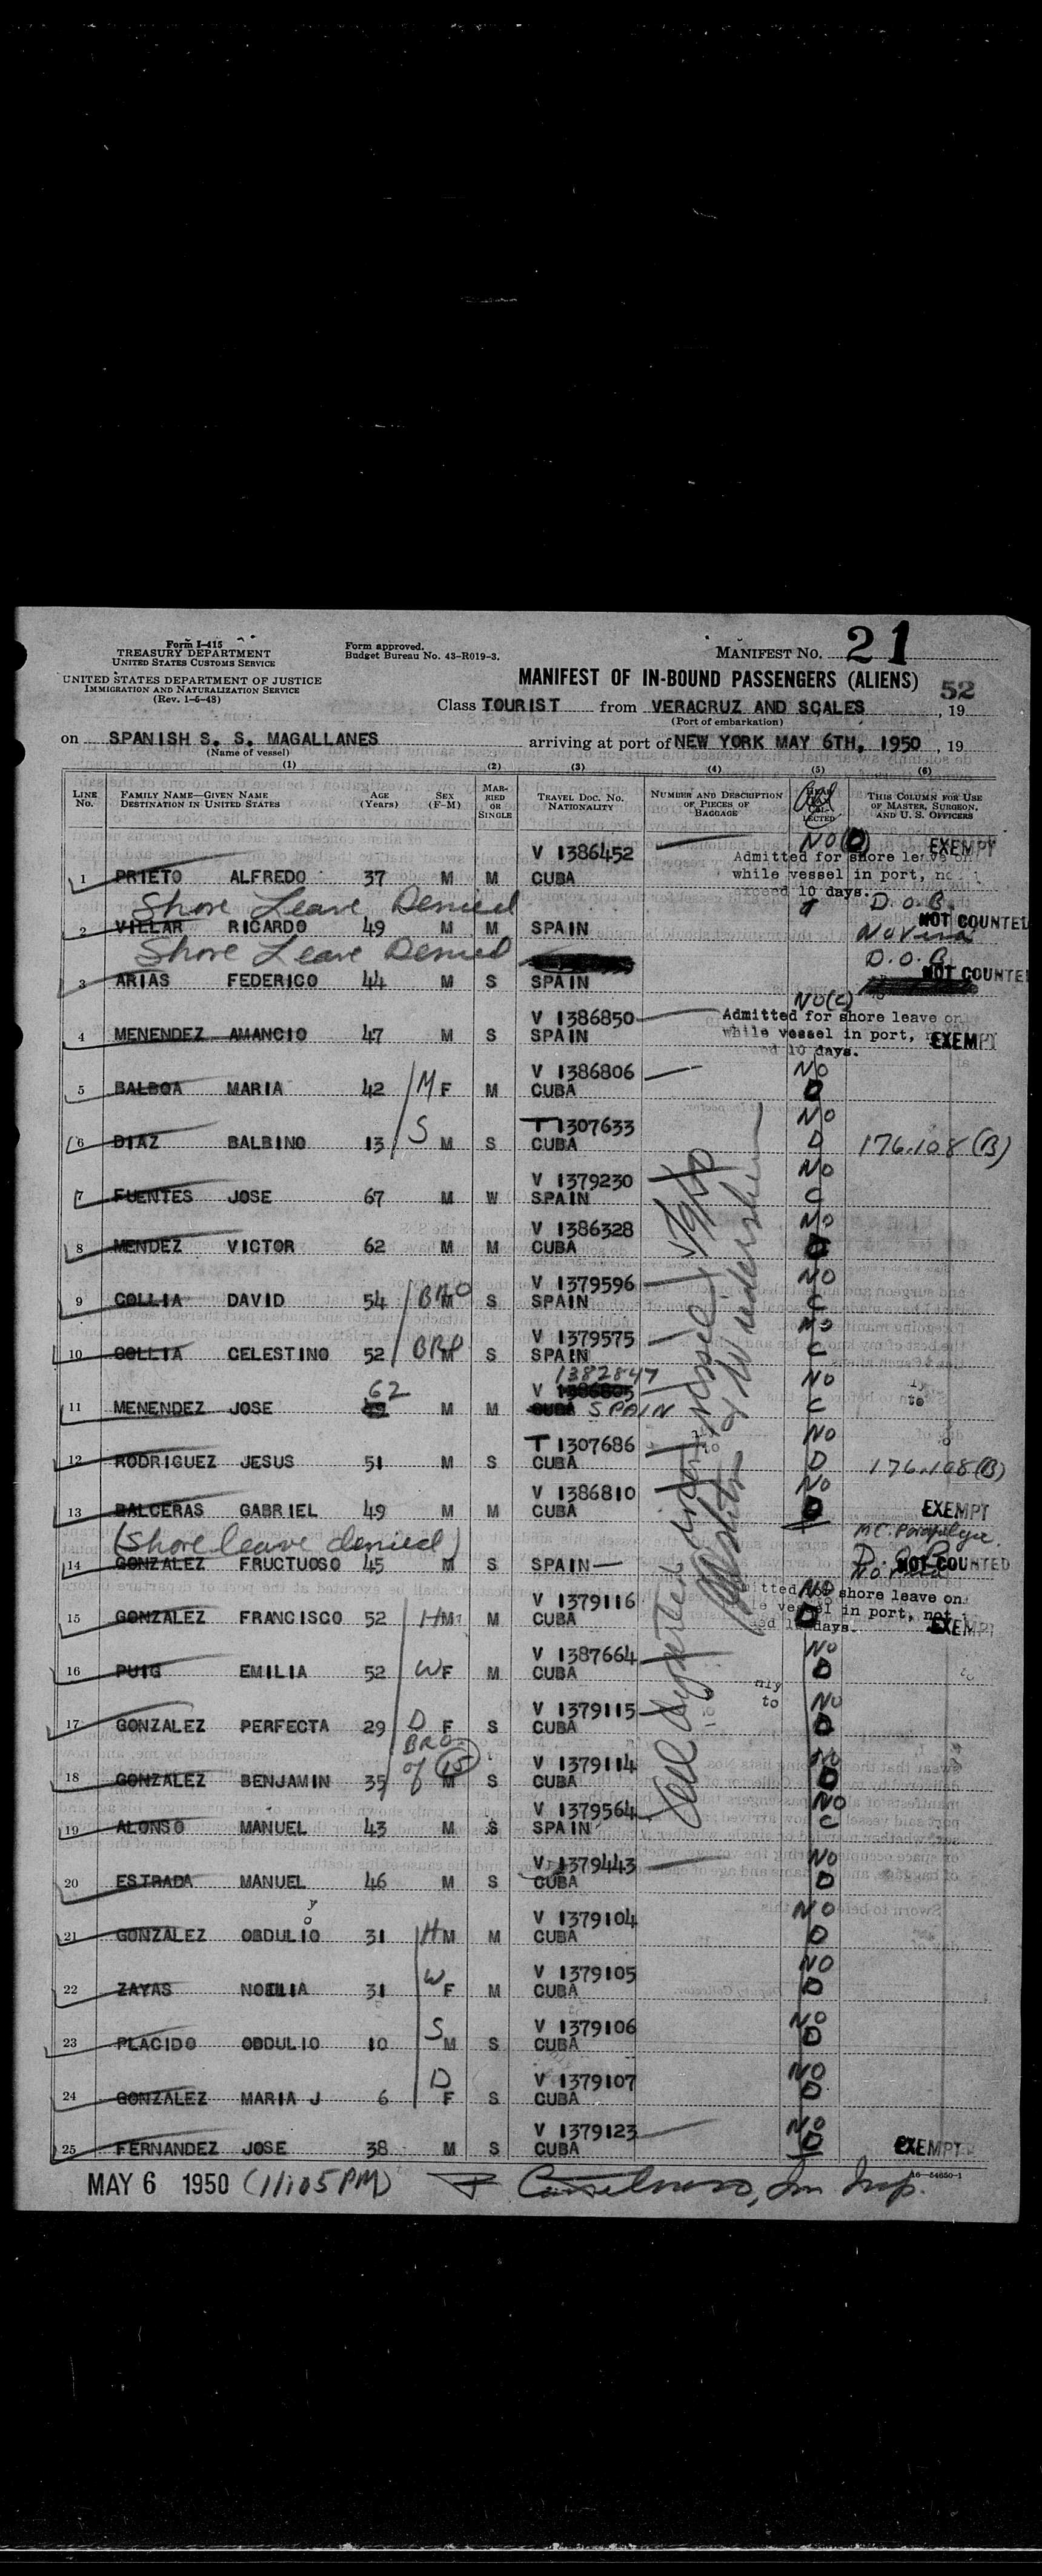 Form I-415
TREASURY DEPARTMENT
UNITED STATES CUSTOMS SERVICE
UNITED STATES DEPARTMENT OF JUSTICE
IMMIGRATION AND NATURALIZATION SERVICE
(Rev. 1-6-48)
Form approved.
Budget Bureau No. 43-R019-3.
MANIFEST NO. 21
MANIFEST OF IN-BOUND PASSENGERS (ALIENS) 52
Class TOURIST from VERACRUZ AND SCALES , 19
(Port of embarkation)
on SPANISH S. S. MAGALLANES arriving at port of NEW YORK MAY 6TH, 1950 , 19
(Name of vessel)
(1) (2) (3) (4) (5) (6)
LINE No. FAMILY NAME—GIVEN NAME DESTINATION IN UNITED STATES AGE (Years) SEX (F-M) MARRIED OR SINGLE TRAVEL DOC. NO. NATIONALITY NUMBER AND DESCRIPTION OF PIECES OF BAGGAGE THIS COLUMN FOR USE OF MASTER, SURGEON, AND U. S. OFFICERS
V 1386452 NO (D) EXEMPT
Admitted for shore leave on
while vessel in port, no
exceed 10 days.
1 PRIETO ALFREDO 37 M M CUBA
Shore Leave Denied D.O.B.
NOT COUNTED
2 VILLAR RICARDO 49 M M SPAIN No Visa
Shore Leave Denied D.O.B.
NOT COUNTED
3 ARIAS FEDERICO 44 M S SPAIN
V 1386850 NO (C)
Admitted for shore leave on
while vessel in port,
10 days.
4 MENENDEZ AMANCIO 47 M S SPAIN EXEMPT
V 1386806 NO
5 BALBOA MARIA 42 M F M CUBA D
T 1307633 NO
6 DIAZ BALBINO 13 S M S CUBA D 176.108 (B)
V 1379230 NO
7 FUENTES JOSE 67 M W SPAIN C
V 1386328 NO
8 MENDEZ VICTOR 62 M M CUBA D
V 1379596 NO
9 COLLIA DAVID 54 BRO M S SPAIN C
V 1379575 NO
10 COLLIA CELESTINO 52 BRO M S SPAIN C
62 V 1382847 NO
11 MENENDEZ JOSE M M SPAIN C
T 1307686 NO
12 RODRIGUEZ JESUS 51 M S CUBA D 176.108 (B)
V 1386810 NO
13 BALCERAS GABRIEL 49 M M CUBA D EXEMPT
(Shore leave denied)
14 GONZALEZ FRUCTUOSO 45 M S SPAIN NOT COUNTED
V 1379116 NO
shore leave on
vessel in port, not
days.
15 GONZALEZ FRANCISCO 52 H M M CUBA D EXEMPT
V 1387664 NO
16 PUIG EMILIA 52 W F M CUBA D
V 1379115 NO
17 GONZALEZ PERFECTA 29 D F S CUBA D
BRO of (15) V 1379114 NO
18 GONZALEZ BENJAMIN 35 M S CUBA D
V 1379564 NO
19 ALONSO MANUEL 43 M S SPAIN C
V 1379443 NO
20 ESTRADA MANUEL 46 M S CUBA D
V 1379104 NO
21 GONZALEZ OBDULIO 31 H M M CUBA D
V 1379105 NO
22 ZAYAS NOELIA 31 W F M CUBA D
V 1379106 NO
23 PLACIDO OBDULIO 10 S M S CUBA D
V 1379107 NO
24 GONZALEZ MARIA J 6 D F S CUBA D
V 1379123 NO
25 FERNANDEZ JOSE 38 M S CUBA D EXEMPT
16—54650-1
MAY 6 1950 (11:05 PM)